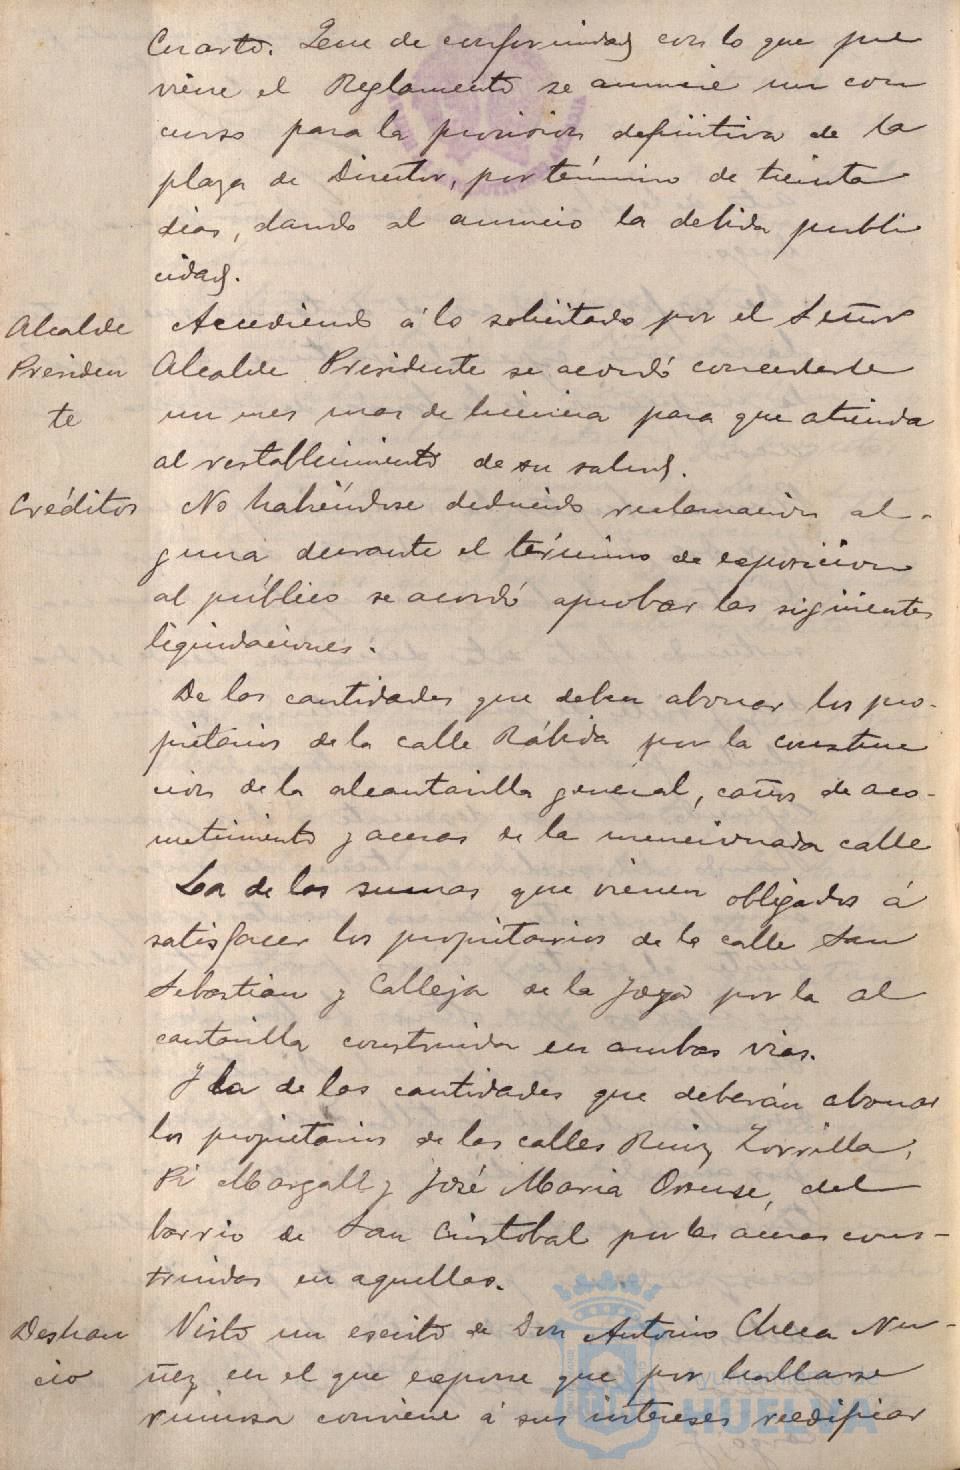 Cuarto. Que de conformidad con lo que pre
viene el Reglamento se anuncie un con
curso para la provision definitiva de la
plaza de Director, por término de treinta
dias, dando al anuncio la debida publi
cidad.
Alcalde
Presiden
te
Accediendo á lo solicitado por el Señor
Alcalde Presidente se acordó concederle
un mes mas de licencia para que atienda
al restablecimiento de su salud.
Créditos
No habiéndose deducido reclamacion al-
guna durante el término de exposicion
al público se acordó aprobar las siguientes
liquidaciones.
De las cantidades que deben abonar los pro-
pietarios de la calle Rábida por la construc
cion de la alcantarilla general, caños de aco-
metimiento y aceras de la mencionada calle
La de las sumas que vienen obligados á
satisfacer los propietarios de la calle San
Sebastian y Calleja de la Joya por la al
cantarilla construida en ambas vias.
Y la de las cantidades que deberán abonar
los propietarios de las calles Ruiz Zorrilla,
Pi Margall y José Maria Orense, del
barrio de San Cristobal por las aceras cons-
truidas en aquellas.
Deshau
cio
Visto un escrito de Don Antonio Checa Nu-
ñez en el que expone que por hallarse
ruinosa conviene á sus intereses reedificar
HUELVA